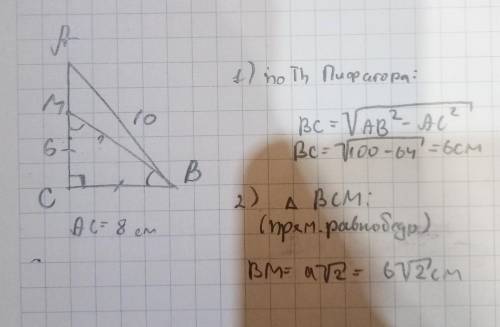 A
M
10
?
6
C
B
AC = 8 см
1) по Th Пифагора:
BC = √AB² - AC²
BC = √100 - 64 = 6 см
2) △ BCM:
(прям. равнобедр)
BM = a√2 = 6√2 см